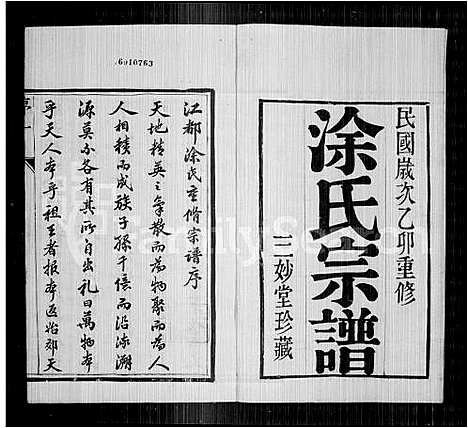 民國歲次乙卯重修
涂氏宗譜
三妙堂珍藏
6010763
江都涂氏重修宗譜序
天地精英之氣散而為物聚而為人
人相積而成族子孫千億而沿流溯
源莫不各有其所自出禮曰萬物本
乎天人本乎祖王者報本返始郊天
序一
FamilySearch